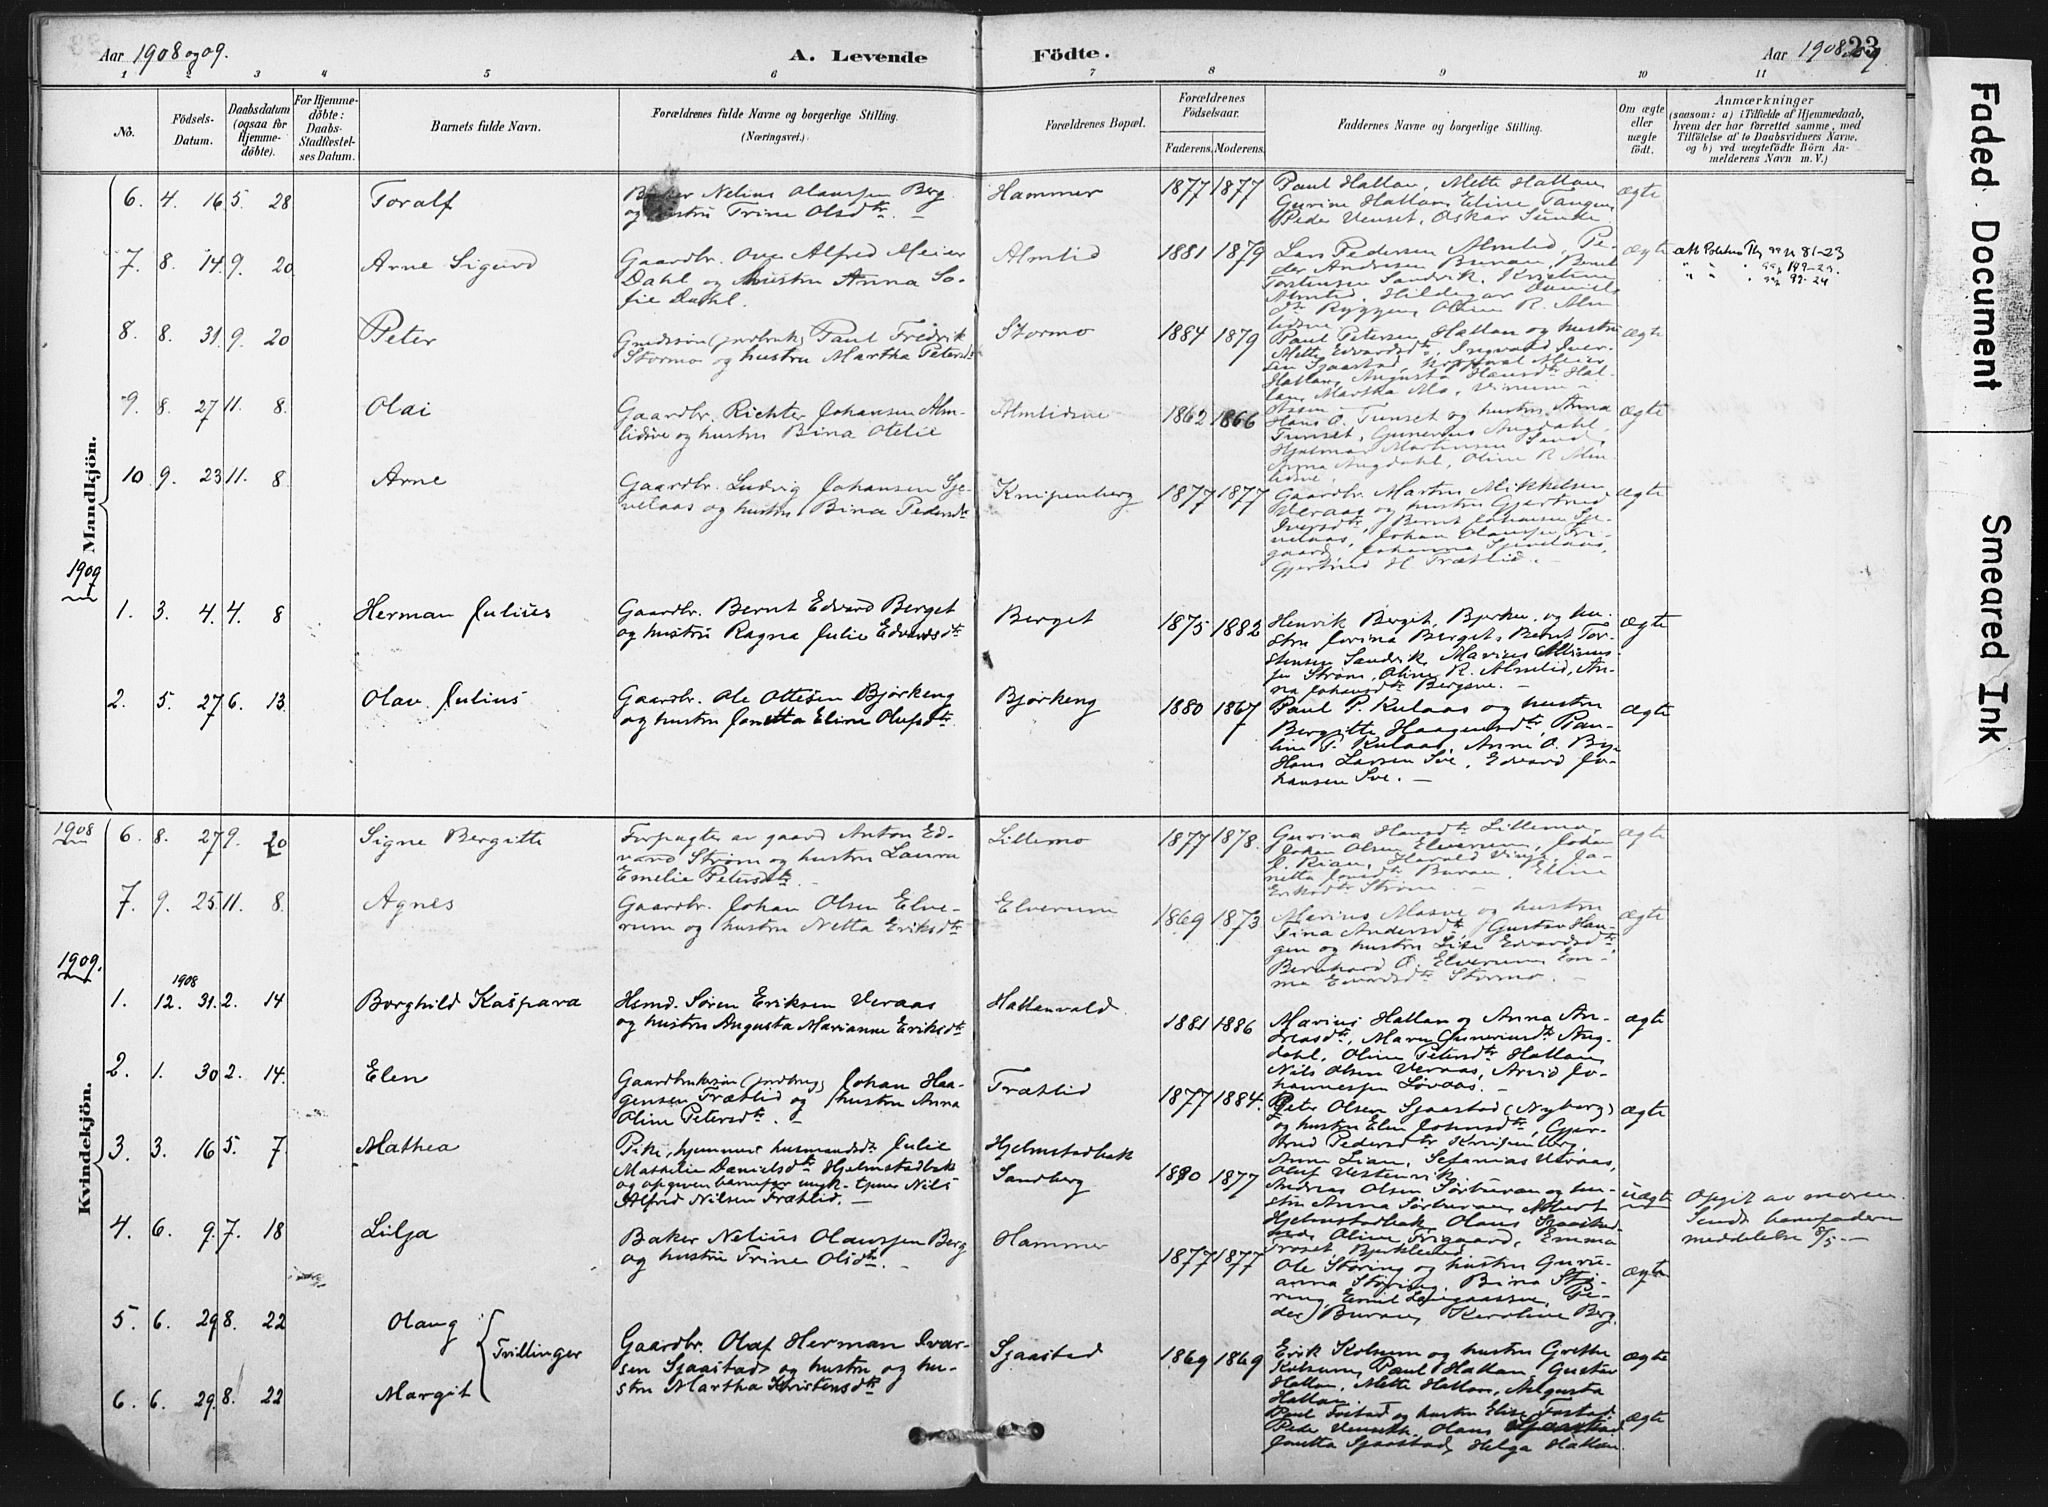 Aar 1908 og 09.
A. Levende
Födte.
Aar 1908 09
23
1 2 3 4 5 6 7 8 9 10 11
No.
Födsels-
Datum.
Daabsdatum
(ogsaa for
Hjemme-
döbte).
For Hjemme-
döbte:
Daabs-
Stadfæstel-
ses Datum.
Barnets fulde Navn.
Forældrenes fulde Navne og borgerlige Stilling.
(Næringsvei.)
Forældrenes Bopæl.
Forældrenes
Födselsaar.
Faderens. Moderens.
Faddernes Navne og borgerlige Stilling.
Om ægte
eller
uægte
födt.
Anmærkninger
(saasom: a) i Tilfælde af Hjemmedaab,
hvem der har forrettet samme, med
Tilföielse af to Daabsvidners Navne,
og b) ved uægtefödte Börn An-
melderens Navn m. V.)
Mandkjön.
6. 4. 16 5. 28 Toralf
Baker Nelius Olaussen Berg
og hustru Trine Olsdtr. —
Hammer 1877 1877
Paul Hallan, Mette Hallan,
Gurine Hallan, Eline Tangen
Peder Venset, Oskar Sunde.
ægte
7. 8. 14 9. 20 Arne Sigurd
Gaardbr. Ove Alfred Meier
Dahl og hustru Anna So-
fie Dahl.
Almlid 1881 1879
Lars Pedersen Almlid, Pe-
der Andersen Buran, Bernt
Torstensen Sandvik, Kristine
Almlid, Hildegar Daniels
dtr Ryggen, Oline R. Alm
lidsve
ægte
8. 8. 31 9. 20 Peter
Gmdssøn (jordbruk) Paul Fredrik
Stormo og hustru Martha Petersdtr
Stormo 1884 1879
Paul Petersen Hallan og hustru
Mette Edvardsdtr, Ingvald Iver-
sen Sjaastad, Meier
Hallan, Augusta Hansdtr Hal-
lan, Martha Mo,
ægte
9. 8. 27 11. 8. Olai
Gaardbr. Richter Johansen Alm-
lidsve og hustru Bina Otelie
Almlidsve 1862 1866
Hans O. Tunset og hustru Anna
Tunset, Gunerius Augdahl,
Hjalmar Martinsen Sand,
Anna Augdahl, Oline R. Alm-
lidsve.
ægte
10. 9. 23 11. 8 Arne
Gaardbr. Ludvig Johansen Sje-
velaas og hustru Bina Pedersdtr
Knipenberg 1877 1877
Gaardbr. Martin Mikkelsen
Veraas og hustru Gjertrud
Iversdtr, Bernt Johansen Sje-
velaas, Johan Olaussen Fri-
gaard, Johanna Sjevelaas,
Gjertrud H Trætlid. —
ægte
1909
1. 3. 4. 4. 8 Herman Julius
Gaardbr. Bernt Edvard Berget
og hustru Ragna Julie Edvardsdtr
Berget 1875 1882
Henrik Berget, Bjerken og hu-
stru Jorina Berget, Bernt Tor-
stensen Sandvik, Marius
Strøm, Oline R. Almlid, An-
na Johansdtr Bergsve. —
ægte
2. 5. 27 6. 13. Olav Julius
Gaardbr. Ole Ottesen Bjørkeng
og hustru Jonetta Eline Olufsdtr.
Bjørkeng 1880 1867
Paul P. Kulaas og hustru
Bergitte Haagensdtr, Pau-
line P. Kulaas, Anne O. By,
Hans Larsen Sve, Edvard Jo-
hansen Sve. —
ægte
Kvindekjön.
1908
6. 8. 27 9. 20 Signe Bergitte
Forpagter av gaard Anton Ed-
vard Strøm og hustru Laura
Emelie Petersdtr. —
Lillemo 1877 1878.
Gurina Hansdtr Lillemo,
Johan Olsen Elverum, Johan
J. Rian, Harald Vinje, Jo-
netta Jonsdtr Buran, Eline
Eriksdtr Strøm. —
ægte
7. 9. 25 11. 8. Agnes
Gaardbr. Johan Olsen Elve-
rum og hustru Netta Eriksdtr
Elverum 1869 1873
Marius Mosve og hustru
Tina Andersdtr, Gustav Hau-
gen og hustru Lise Edvardsdtr,
Bernhard O. Elverum, Em-
ma Edvardsdtr Stormo. —
ægte
1909.
1. 1908 12. 31. 2. 14 Borghild Kaspara
Hsmd. Søren Eriksen Veraas
og hustru Augusta Marianne Eriksdtr
Hallanvald. 1881 1886
Marius Hallan og Anna An-
dreasdtr, Maren Guneriusdtr Aug-
dahl, Oline Petersdtr Hallan,
Nils Olsen Veraas, Arvid Jo-
hannessen Løvaas. —
ægte
2. 1. 30 2. 14. Elen
Gaardbrukersøn (jordbrug) Johan Haa-
gensen Trætlid og hustru Anna
Oline Petersdtr. —
Trætlid 1877 1884.
Peter Olsen Sjaastad (Nyborg)
og hustru Elen Johnsdtr, Gjer-
trud Pedersdtr Knipenberg,
Anne Lian, Sefanias Veraas,
Oluf Vestervik
ægte
3. 3. 16 5. 7 Mathea
Pike, hjemmev. husmandsdtr Julie
Mathilie Danielsdtr Hjelmstadbak
og opgiven barnefar ungk. tjener Nils
Alfred Nilsen Trætlid. —
Hjelmstadbak
Sandberg 1880 1877
Andreas Olsen Sørburan og hu-
stru Anna Sørburan, Albert
Hjelmstadbak, Olaus Sjaastad-
, Oline Frigaard, Emma
uægte
Opgit av moren.
Sendt barnefaderen
meddelelse 8/5 —
4. 6. 9. 7. 18 Lilja
Baker Nelius Olaussen Berg
og hustru Trine Olsdtr. —
Hammer 1877 1877
Ole Støring og hustru Guru-
anna Støring, Bina Stø-
ring, Emil , Pe-
der Buran, Karoline Berg.
ægte
5. 6. 29 8. 22 Olaug
Tvillinger
Gaardbr. Olaf Herman Ivar-
sen Sjaastad og hustru og hu-
stru Martha Kristensdtr
Sjaastad 1869 1869
Erik Kolsum og hustru Grethe
Kolsum, Paul Hallan, Gustav
Hallan, Mette Hallan, Augusta
Hallan.
ægte
6. 6. 29. 8. 22 Margit
Paul Tostad og hustru Elise Tostad,
Peder Venseth, Olaus Sjaastad
Jonetta Sjaastad, Helga Hallan.
ægte
Faded Document
Smeared Ink